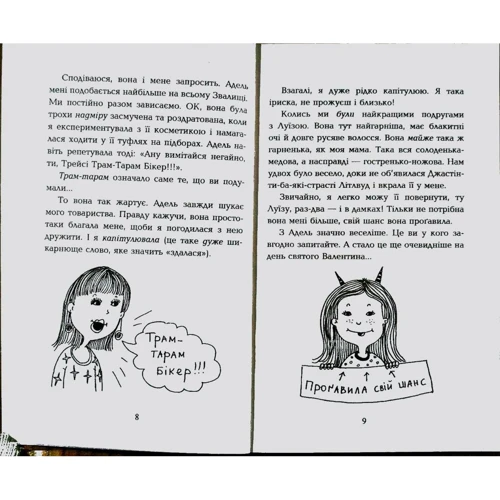 Сподіваюся, вона і мене запросить. Адель
мені подобається найбільше на всьому Звалищі.
Ми постійно разом зависаємо. ОК, вона була
трохи надміру засмучена та роздратована, коли
я експериментувала з її косметикою і намага-
лася ходити у її туфлях на підборах. Адель на-
віть репетувала тоді: «Ану вимітайся негайно,
ти, Трейсі Трам-Тарам Бікер!!!».
Трам-тарам означало саме те, що ви поду-
мали...
То вона так жартує. Адель завжди шукає
мого товариства. Правду кажучи, вона просто-
таки благала мене, щоби я погодилася з нею
дружити. І я капітулювала (це таке дуже ши-
карнюще слово, яке значить «здалася»).
Трам-
тарам
Бікер!!!
8
Взагалі, я дуже рідко капітулюю. Я така
іриска, не прожуєш і близько!
Колись ми були найкращими подругами
з Луїзою. Вона тут найгарніша, має блакитні
очі й довге русяве волосся. Вона майже така ж
гарненька, як моя мама. Така вся солоденька-
медова, а насправді — гостренько-ножова. Нам
удвох було весело, доки не об'явилася Джасті-
нти-ба-які-страсті Літлвуд і вкрала її у мене.
Звичайно, я легко можу її повернути, ту
Луїзу, раз-два — і в дамках! Тільки не потрібна
вона мені більше, свій шанс вона прогавила.
З Адель значно веселіше. Це ви у кого за-
вгодно запитайте. А стало це ще очевидніше на
день святого Валентина...
Проґавила свій шанс
9